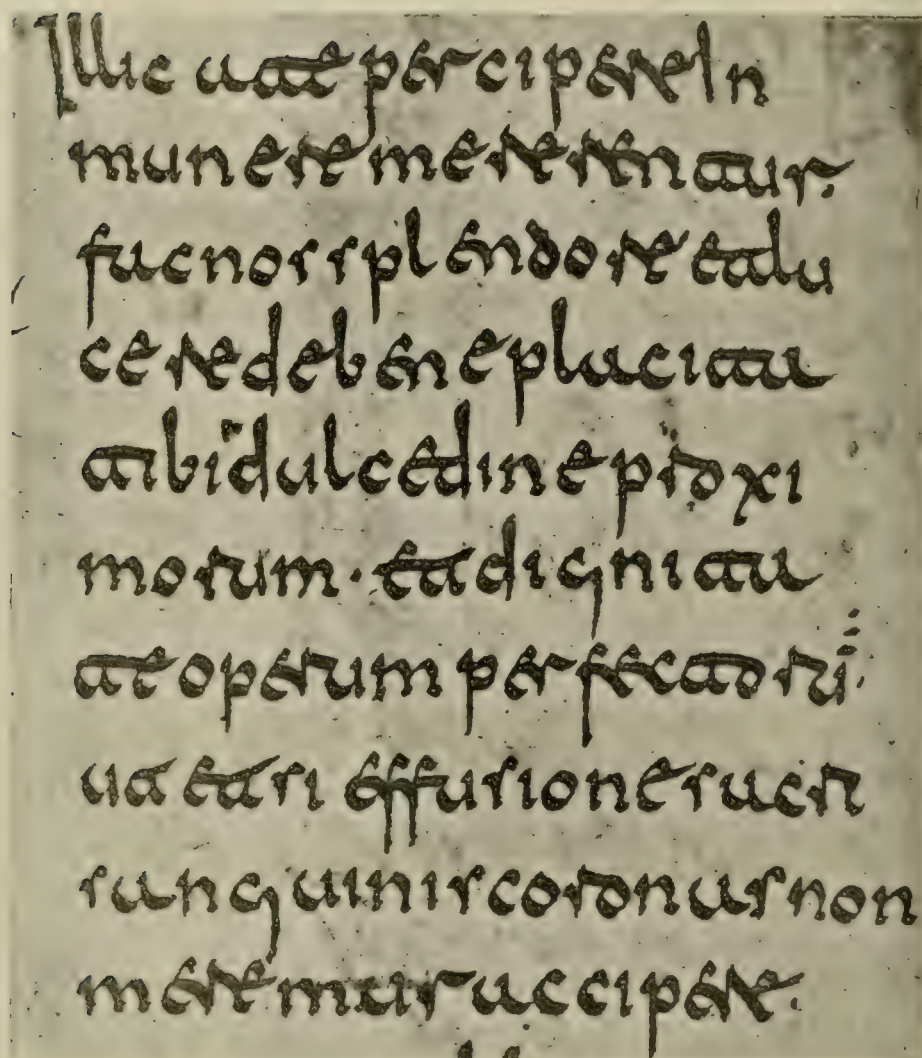 Illic ut te percipere In
munere mererentur.
fac nos splendore et lu
ce rede bene placita
tibi dulcedine proxi
morum. et dignita
te operum perfectorū:
ut etsi effusione sacri
sanguinis coronas non
meremur accipere.